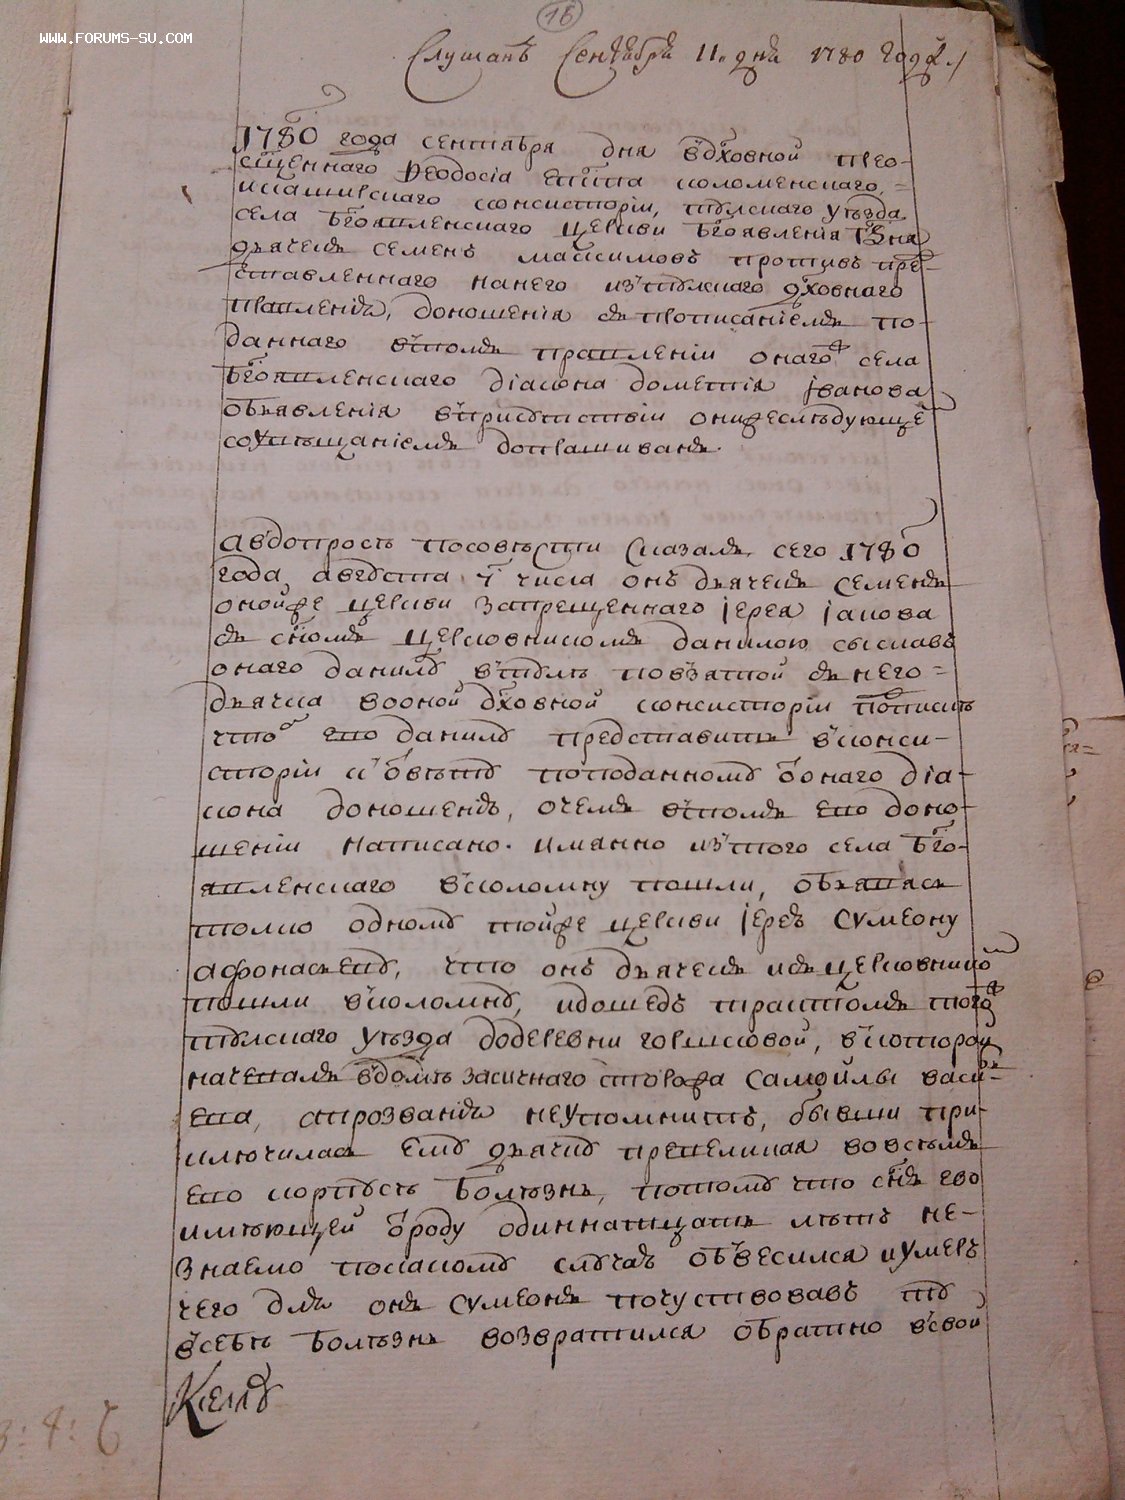 WWW.FORUMS-SU.COM
16
Слушанъ Сентября 11. дня 1780 года.
1780 года сентября дня вдховной прео-
сщеннаго Феодосіа еппа коломенскаго, =
икаширскаго консисторіи, тулскаго уѣзда
села бгоявленскаго церкви бгоявленіа гдня
дьячекъ семенъ максимовъ противъ пре-
ставленнаго нанего изтулскаго дховнаго
правленія, доношенія съ прописаніемъ по-
даннаго втомъ правленіи онаго села
бгоявленскаго діакона дометія іванова
объявленія вприсудствіи онижеслѣдующе
соувѣщаніемъ допрашиванъ.
Авдопросѣ посовѣсти сказалъ сего 1780
года августа числа онъ дьячекъ семенъ
онойже церкви запрещеннаго іерея іакова
съ сномъ церковникомъ данилою сыскавъ
онаго данилу втулѣ повзятой снего =
дьячка вооной дховной консисторіи потпискѣ
что ево данилу представить вконси-
сторіи кответу поподанному онаго діа-
кона доношенію, очемъ втомъ ево доно-
шеніи написано. имянно изтого села бго-
явленскаго вколомну пошли, объявясь
толко одному тойже церкви іерею сумеону
афонасьеву, что онъ дьячекъ исъцерковнико
пошли вколомну, идошедъ трактомъ того
тулскаго уѣзда додеревни горшковой, вкоторой
начевалъ вдомѣ засичнаго сторожа самойлы васи-
ева, прозванія неупомнитъ, бывши при-
ключилась ему дьячку превеликая вовсѣмъ
ево корпусѣ болѣзнь, потому что снъ ево
имѣющей отроду одиннатцать лѣтъ не-
знаемо покакому случаю обвесился иумеръ
чего для онъ сумеонъ почуствовавъ ту
всебѣ болѣзнь возвратился обратно всвой